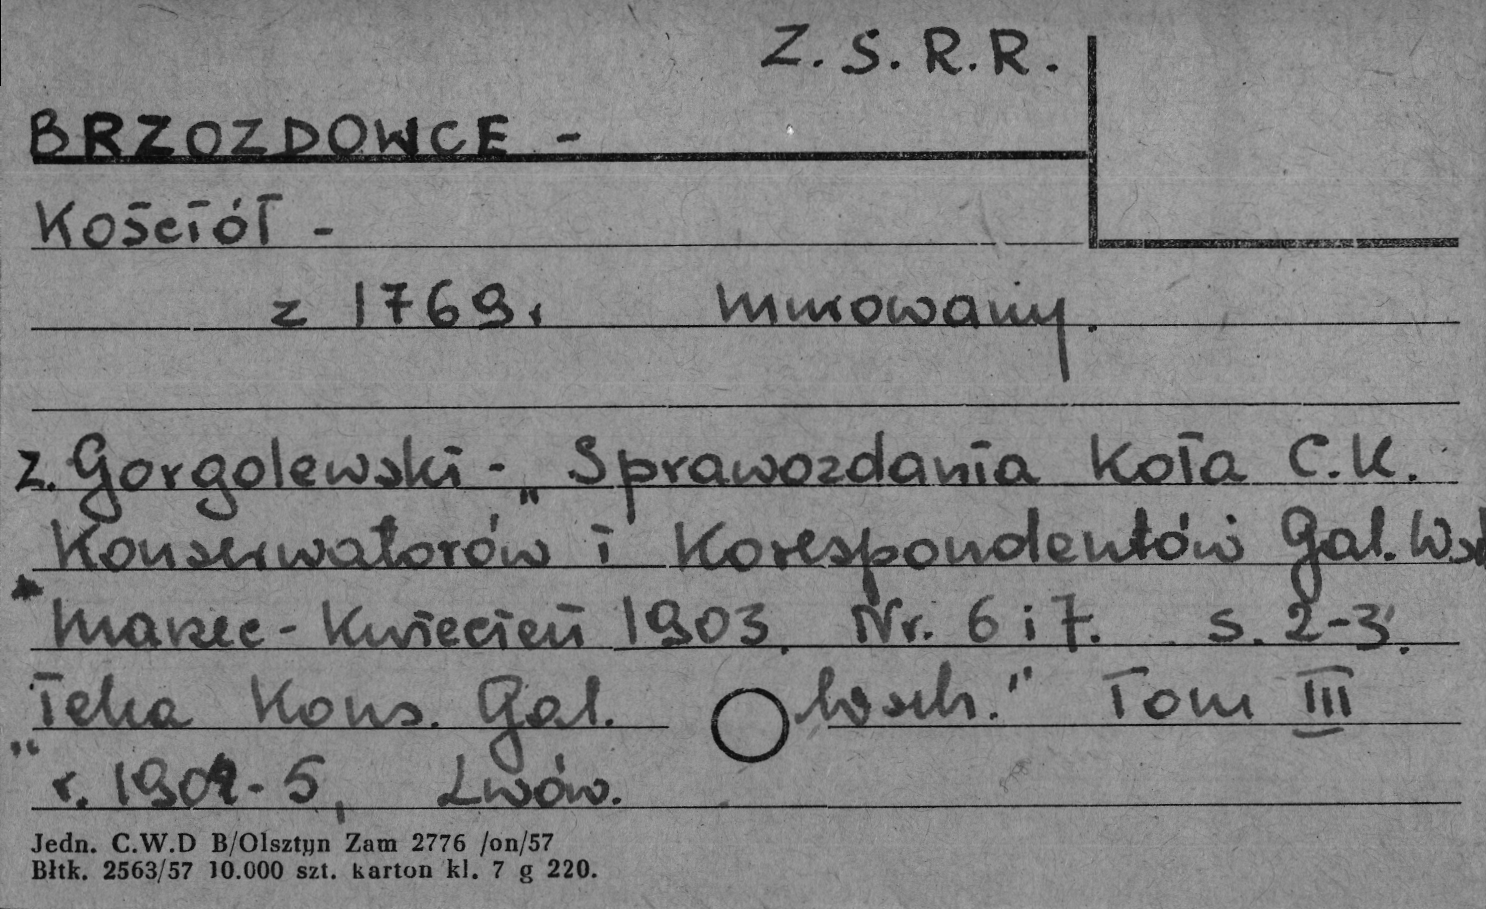 Z. S. R. R.
BRZOZDOWCE -
Kościół -
z 1769 r murowany.
Z. Gorgolewski - „Sprawozdania Koła C. K.
Konserwatorów i Korespondentów Gal. Wsch
Marzec - Kwiecień 1903. Nr. 6 i 7. s. 2-3.
„Teka Kons. Gal. Wsch." Tom III
r. 1904-5, Lwów.
Jedn. C.W.D B/Olsztyn Zam 2776 /on/57
Błtk. 2563/57 10.000 szt. karton kl. 7 g 220.